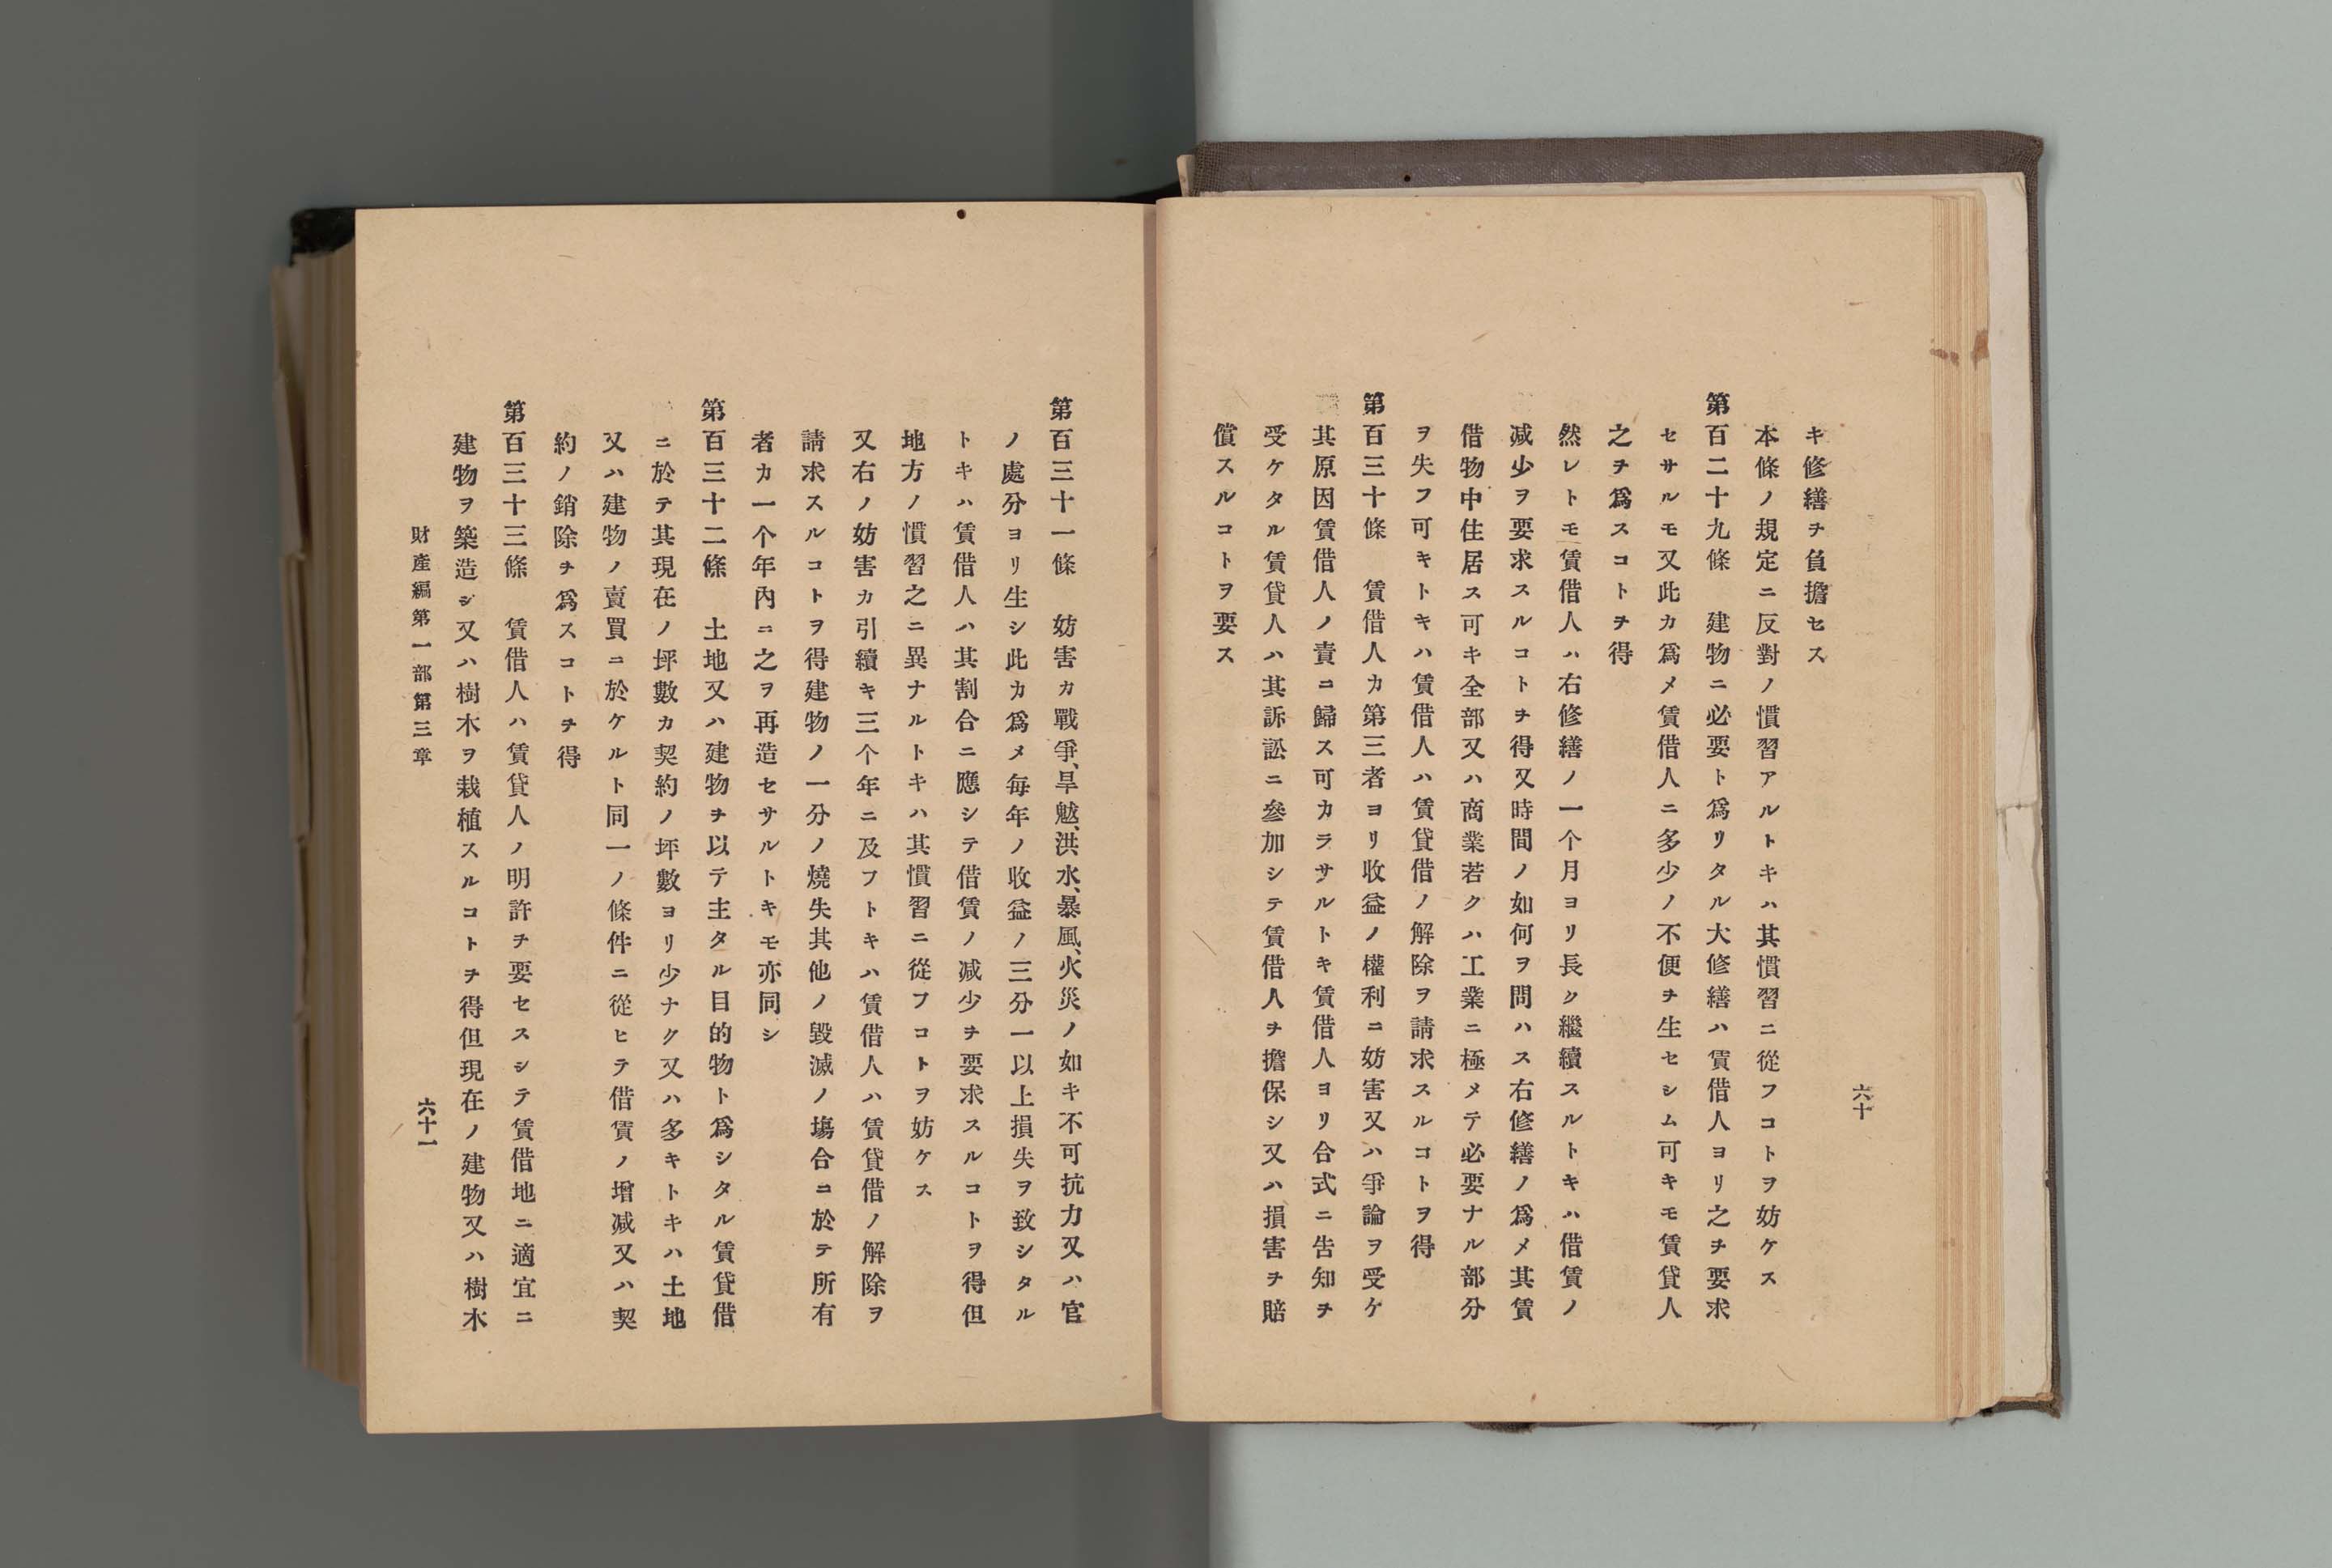 六十
キ修繕ヲ負擔セス
本條ノ規定ニ反對ノ慣習アルトキハ其慣習ニ從フコトヲ妨ケス
第百二十九條　建物ニ必要ト爲リタル大修繕ハ賃借人ヨリ之ヲ要求
セサルモ又此カ爲メ賃借人ニ多少ノ不便ヲ生セシム可キモ賃貸人
之ヲ爲スコトヲ得
然レトモ賃借人ハ右修繕ノ一个月ヨリ長ク繼續スルトキハ借賃ノ
减少ヲ要求スルコトヲ得又時間ノ如何ヲ問ハス右修繕ノ爲メ其賃
借物中住居ス可キ全部又ハ商業若クハ工業ニ極メテ必要ナル部分
ヲ失フ可キトキハ賃借人ハ賃貸借ノ解除ヲ請求スルコトヲ得
第百三十條　賃借人カ第三者ヨリ收益ノ權利ニ妨害又ハ爭論ヲ受ケ
其原因賃借人ノ責ニ歸ス可カラサルトキ賃借人ヨリ合式ニ告知ヲ
受ケタル賃貸人ハ其訴訟ニ參加シテ賃借人ヲ擔保シ又ハ損害ヲ賠
償スルコトヲ要ス
第百三十一條　妨害カ戰爭、旱魃、洪水、暴風、火災ノ如キ不可抗力又ハ官
ノ處分ヨリ生シ此カ爲メ毎年ノ收益ノ三分一以上損失ヲ致シタル
トキハ賃借人ハ其割合ニ應シテ借賃ノ减少ヲ要求スルコトヲ得但
地方ノ慣習之ニ異ナルトキハ其慣習ニ從フコトヲ妨ケス
又右ノ妨害カ引續キ三个年ニ及フトキハ賃借人ハ賃貸借ノ解除ヲ
請求スルコトヲ得建物ノ一分ノ燒失其他ノ毀滅ノ塲合ニ於テ所有
者カ一个年內ニ之ヲ再造セサルトキモ亦同シ
第百三十二條　土地又ハ建物ヲ以テ主タル目的物ト爲シタル賃貸借
ニ於テ其現在ノ坪數カ契約ノ坪數ヨリ少ナク又ハ多キトキハ土地
又ハ建物ノ賣買ニ於ケルト同一ノ條件ニ從ヒテ借賃ノ增减又ハ契
約ノ銷除ヲ爲スコトヲ得
第百三十三條　賃借人ハ賃貸人ノ明許ヲ要セスシテ賃借地ニ適宜ニ
建物ヲ築造シ又ハ樹木ヲ栽植スルコトヲ得但現在ノ建物又ハ樹木
財產編第一部第三章
六十一